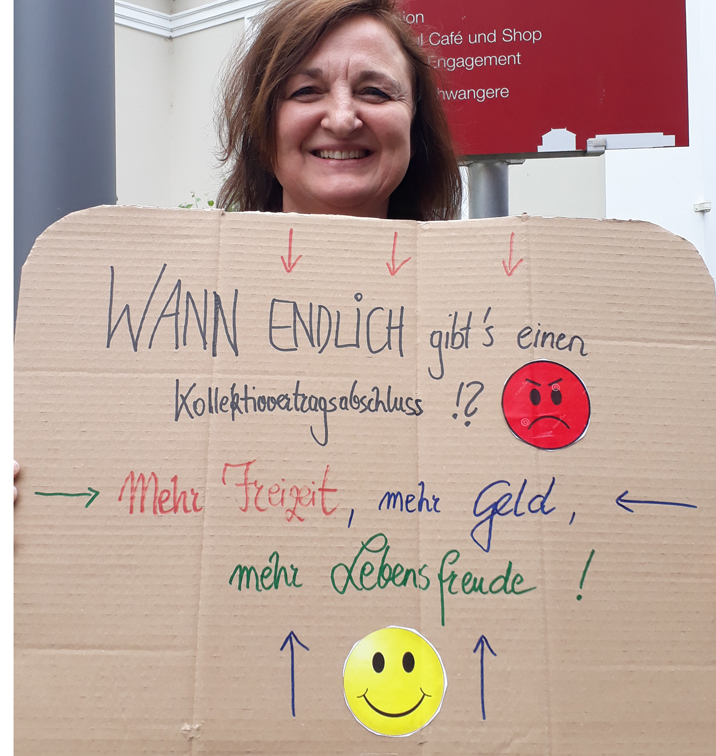 ion
l Café und Shop
Engagement
hwangere
WANN ENDLICH gibt's einen
Kollektivvertragsabschluss !?
Mehr Freizeit, mehr Geld,
mehr Lebensfreude !